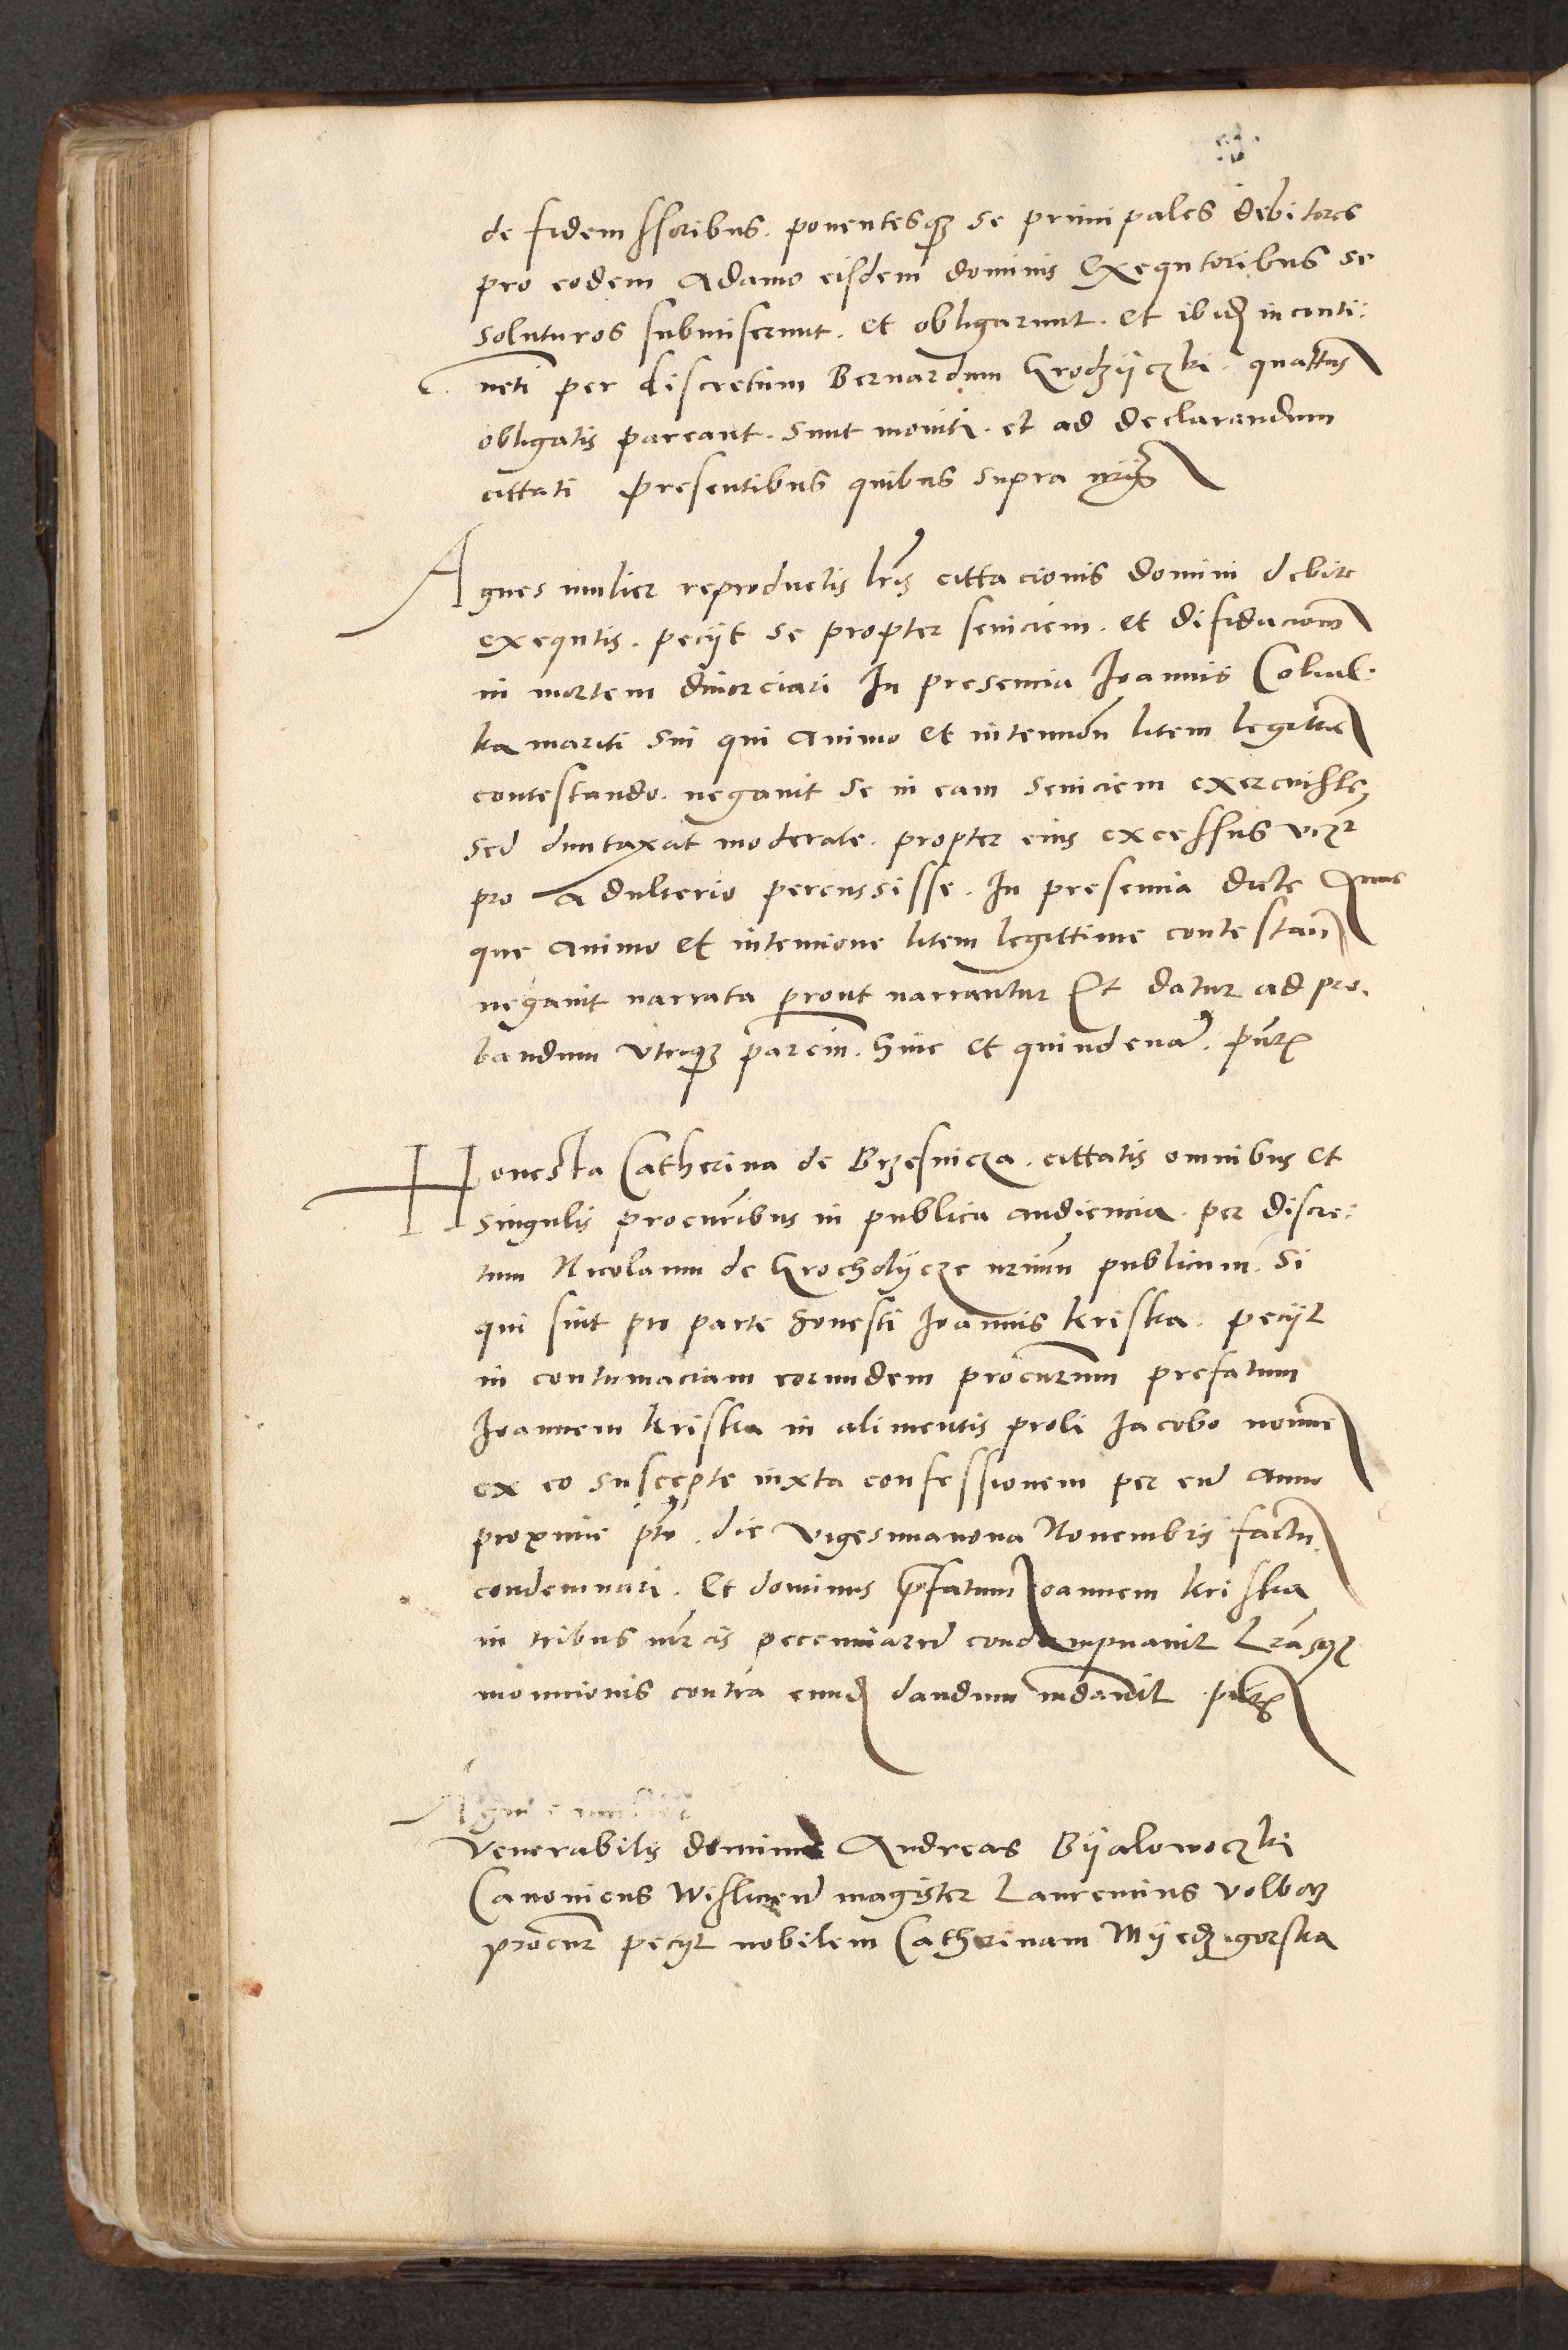 de fidemssoribus. ponentesqȝ se principales debitores
pro eodem Adamo eisdem dominis Exequtoribus se
soluturos submiserunt. et obligarunt. et ibidȝ in conti:
neti per discretum Bernardum Grodzijczki. quatus
obligatis pareant. sunt moniti. et ad declarandum
cittati presentibus quibus supra
Agnes mulier reproductis lris cittacionis domini debite
exequtis. pecijt se propter seviciem. et difidacionem
in mortem divorciari In presencia Ioannis Cobial:
ka mariti sui qui animo et intencion litem legittime
contestando. negavit se in eam seviciem exercuisse,
sed duntaxat moderate. propter eius excessus vizr
pro adulterio percussisse. In presencia dicte Agnetis
que animo et intencione litem legittime contestan
negavit narrata prout narrantur Et datur ad pro.
bandum utriqȝ parcin. hinc et quindena. pntibus
Honesta Catherina de Brzesnicza. cittatis omnibus et
singulis procuribus in publica audiencia. per discre:
tum Nicolaum de Grocholijcze nrium publicum. Si
qui sint pro parte honesti Ioannis Kriska. pecijt
in contumaciam eorundem procurum prefatum
Ioannem Kriska in alimentis proli Iacobo nomine
ex eo suscepte iuxta confessionem per eum anno
proxime pto. die vigesimanona Novembris factu
condemnari. Et dominus prefatum Ioannem Kriska
in tribus mrcis pecuniarum condempnavit Lrasqȝ
monicionis contra eundȝ dandum mdavit
Agnes mulier
Venerabilis dominus Andreas Bijalowoczki
Canonicus Wislicien magister Laurencius Volbȝ
procur pecijt nobilem Catherinam Mijedzigorska